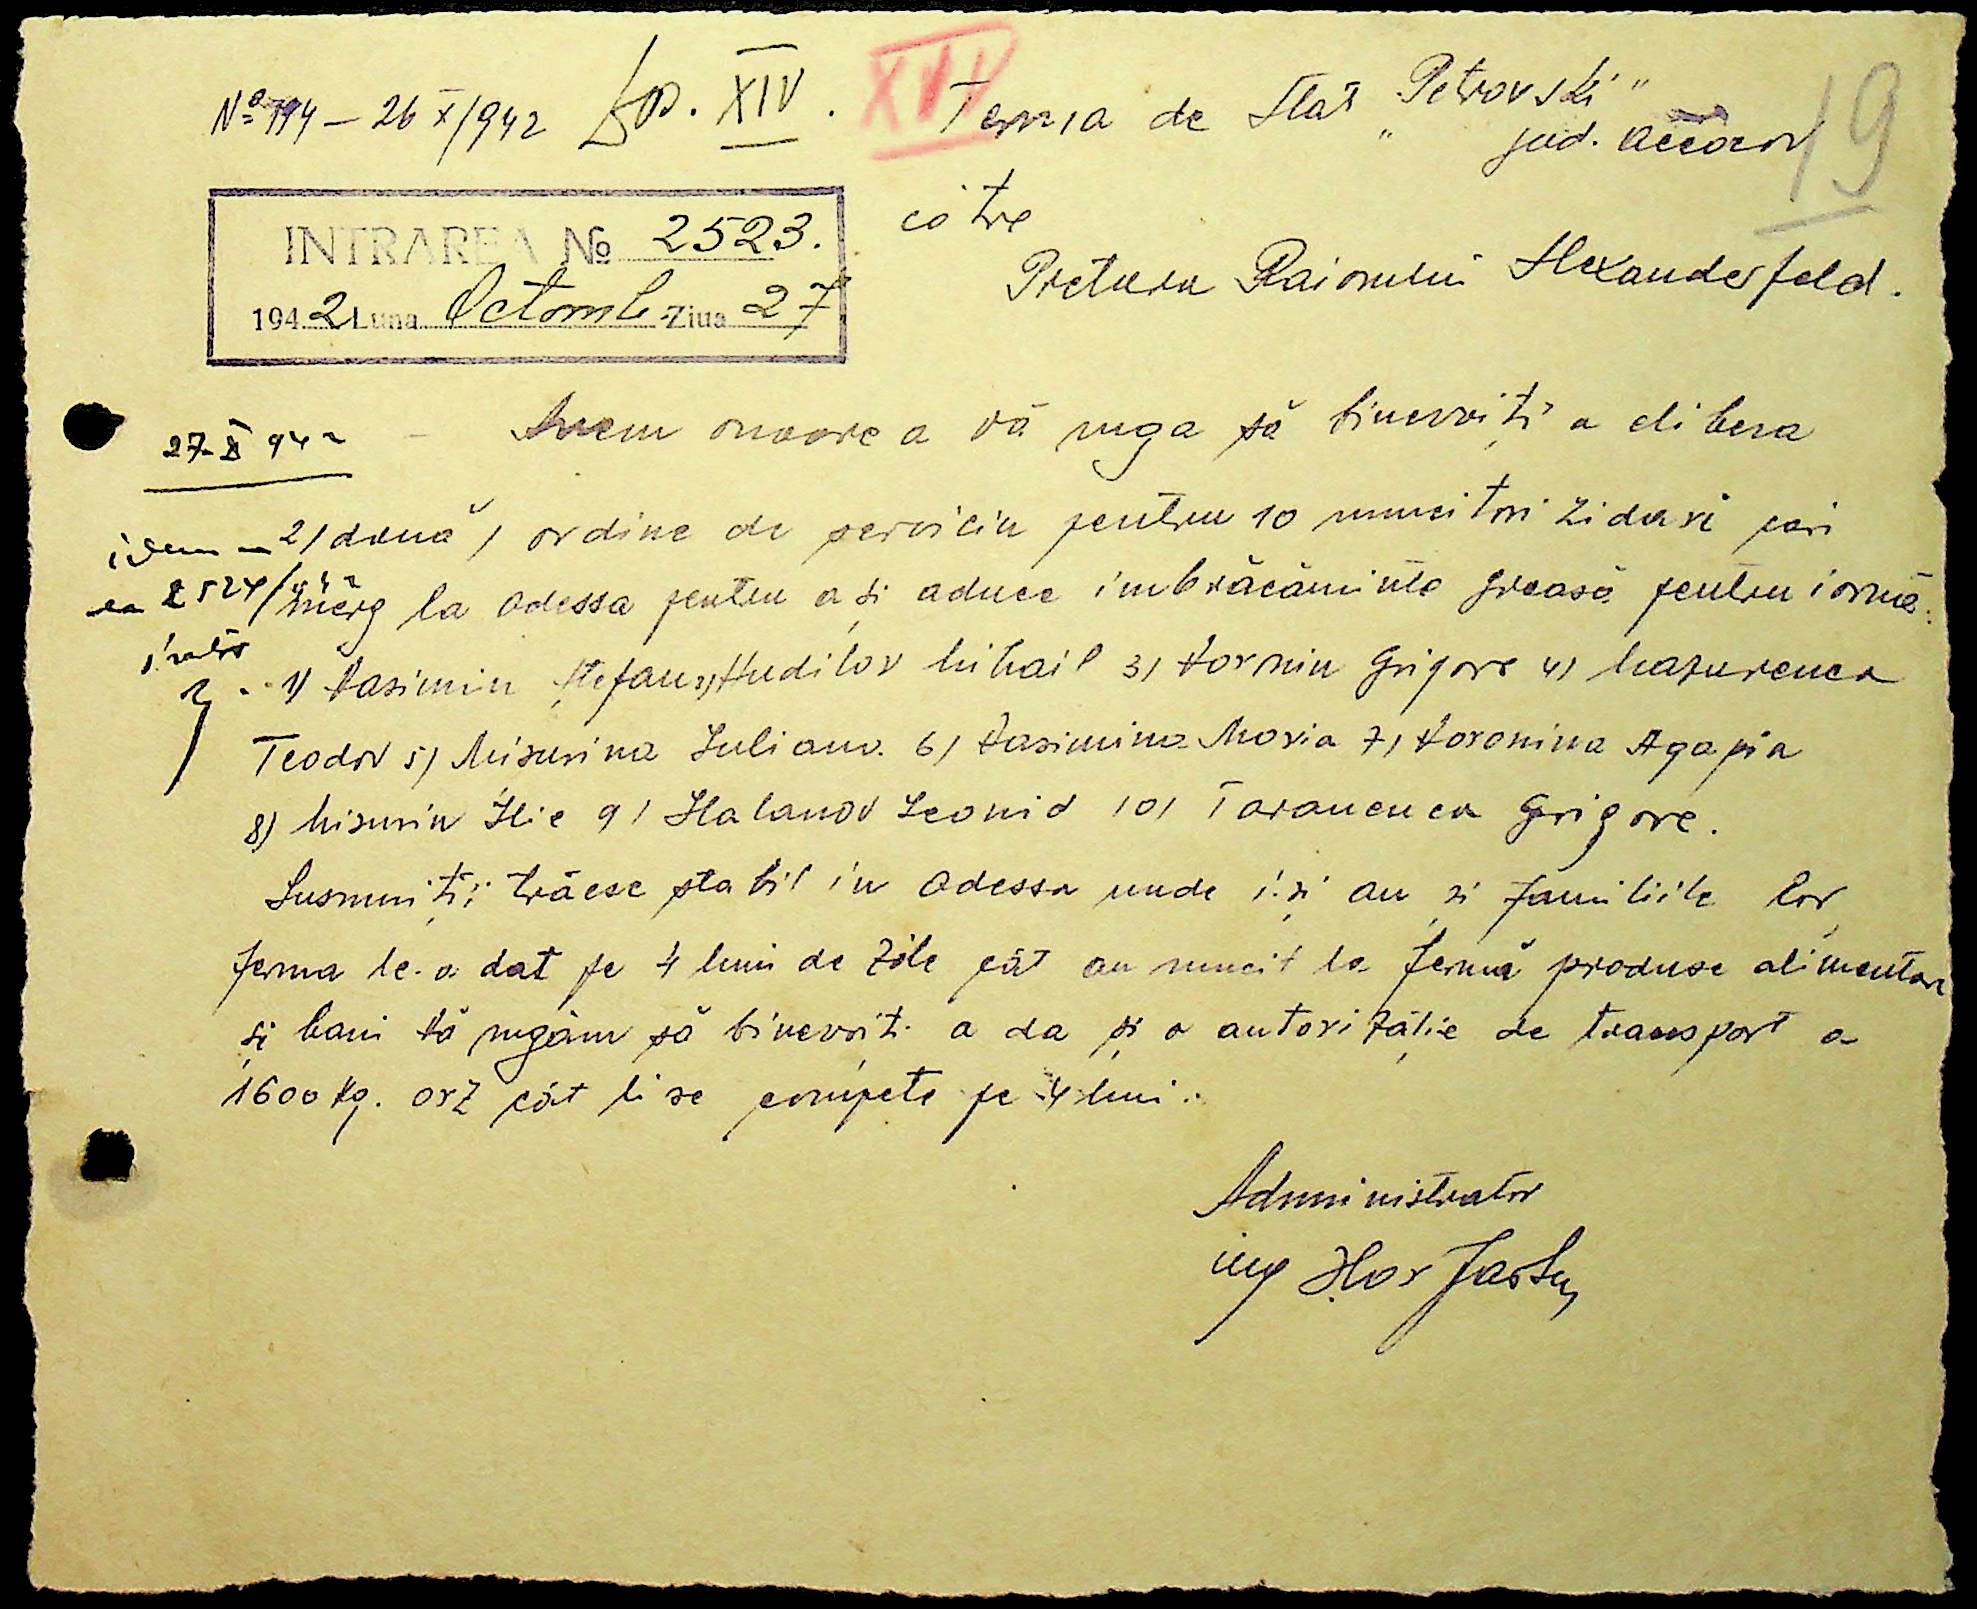 No 794 – 26 X/942 Dos. XIV. XVI Ferma de Stat „Petrovski" 19
jud. Oceacov
către
Pretura Raionului Alexanderfeld.
INTRAREA No 2523.
1942 Luna Octomb Ziua 27
27 X 942
Avem onoare a vă ruga să binevoiți a elibera
2/două/ ordine de serviciu pentru 10 muncitori zidari cari
merg la Odessa pentru a și aduce imbrăcăminte groasă pentru iarnă.
idem
la 2524/942
1) Kasimin Ștefan 2) Kudilov Mihail 3) Kornin Grigore 4) Mazurenco
Teodor 5) Misurina Iuliana 6) Kasimina Maria 7) Koronina Agapia
8) Misurin Ilie 9) Halanov Leonid 10) Taranenco Grigore.
Susnumiții trăesc stabil in Odessa unde iși au și familiile lor
ferma le-a dat pe 4 luni de zile cât au muncit la fermă produse alimentare
și bani Vă rugăm să binevoiți a da și o autorizație de transport a
1600 kg. orz cât li se compete pe 4 luni.
Administrator
ing